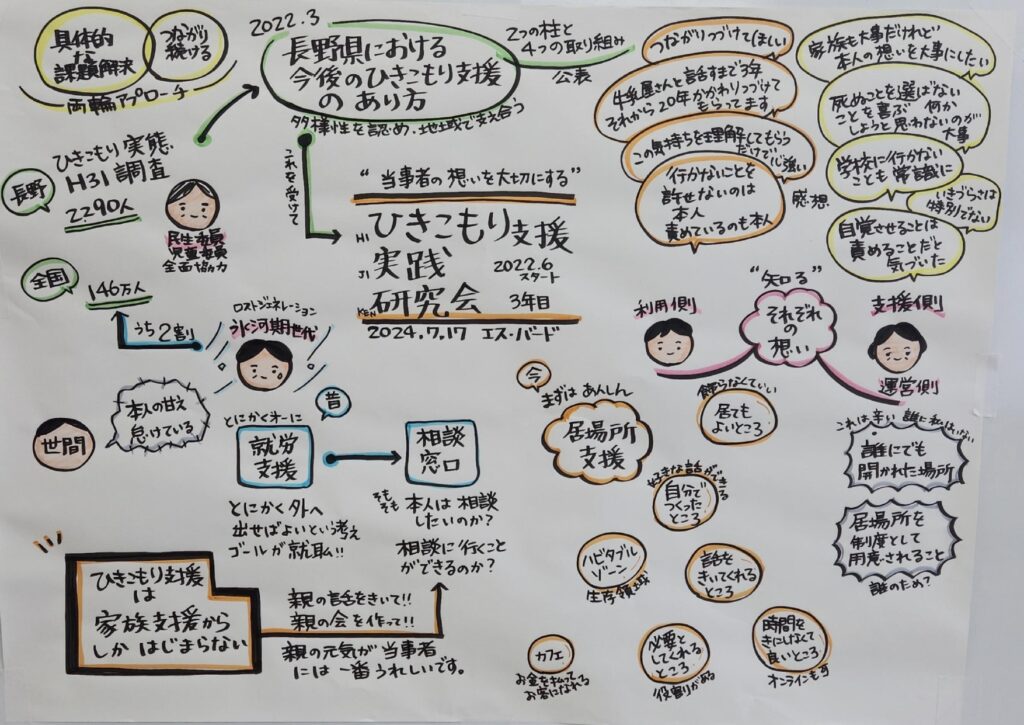 具体的
な
課題解決
つながり
続ける
両輪アプローチ
2022.3
長野県における
今後のひきこもり支援
の あり方
2つの柱と
4つの取り組み
公表
多様性を認め、地域で支え合う
これを受けて
ひきこもり実態
H31 調査
長野
2290人
民生委員
児童委員
全面協力
全国
146万人
うち2割
ロストジェネレーション
氷河期世代
世間
本人の甘え
怠けている
"当事者の想いを大切にする"
HI
ひきこもり支援
JI
実践
2022.6
スタート
KEN
研究会
3年目
2024.7.17 エス・バード
つながりつづけてほしい
牛乳屋さんと話すまで3年
それから20年かかわりつづけて
もらってます
この気持ちを理解してもらう
だけで心強い
行かないことを
許せないのは
本人
責めているのも本人
感想
家族も大事だけれど
本人の想いを大事にしたい
死ぬことを選ばない
ことを喜ぶ 何か
しようと思わないのが
大事
学校に行かない
ことも常識に
いきづらさは
特別でない
自覚させることは
責めることだと
気づいた
"知る"
それぞれ
の
想い
利用側
支援側
運営側
昔
とにかく才一に
就労
支援
とにかく外へ
出せばよいという考え
ゴールが就職!!
相談
窓口
そもそも
本人は相談
したいのか?
相談に行くこと
ができるのか?
ひきこもり支援
は
家族支援から
しか はじまらない
親の話をきいて!!
親の会を作って!!
親の元気が当事者
には一番うれしいです。
今
まずは あんしん
居場所
支援
飾らなくていい
居ても
よいところ
好きな話ができる
自分で
つくった
ところ
ハビタブル
ゾーン
生存領域
話を
きいてくれる
ところ
カフェ
お金を払って
お客になれる
必要と
してくれる
ところ
役割りがある
時間を
きにしなくて
良いところ
オンラインも可
これは辛い 誰に私はいない
誰にでも
開かれた場所
居場所を
制度として
用意されること
誰のため?